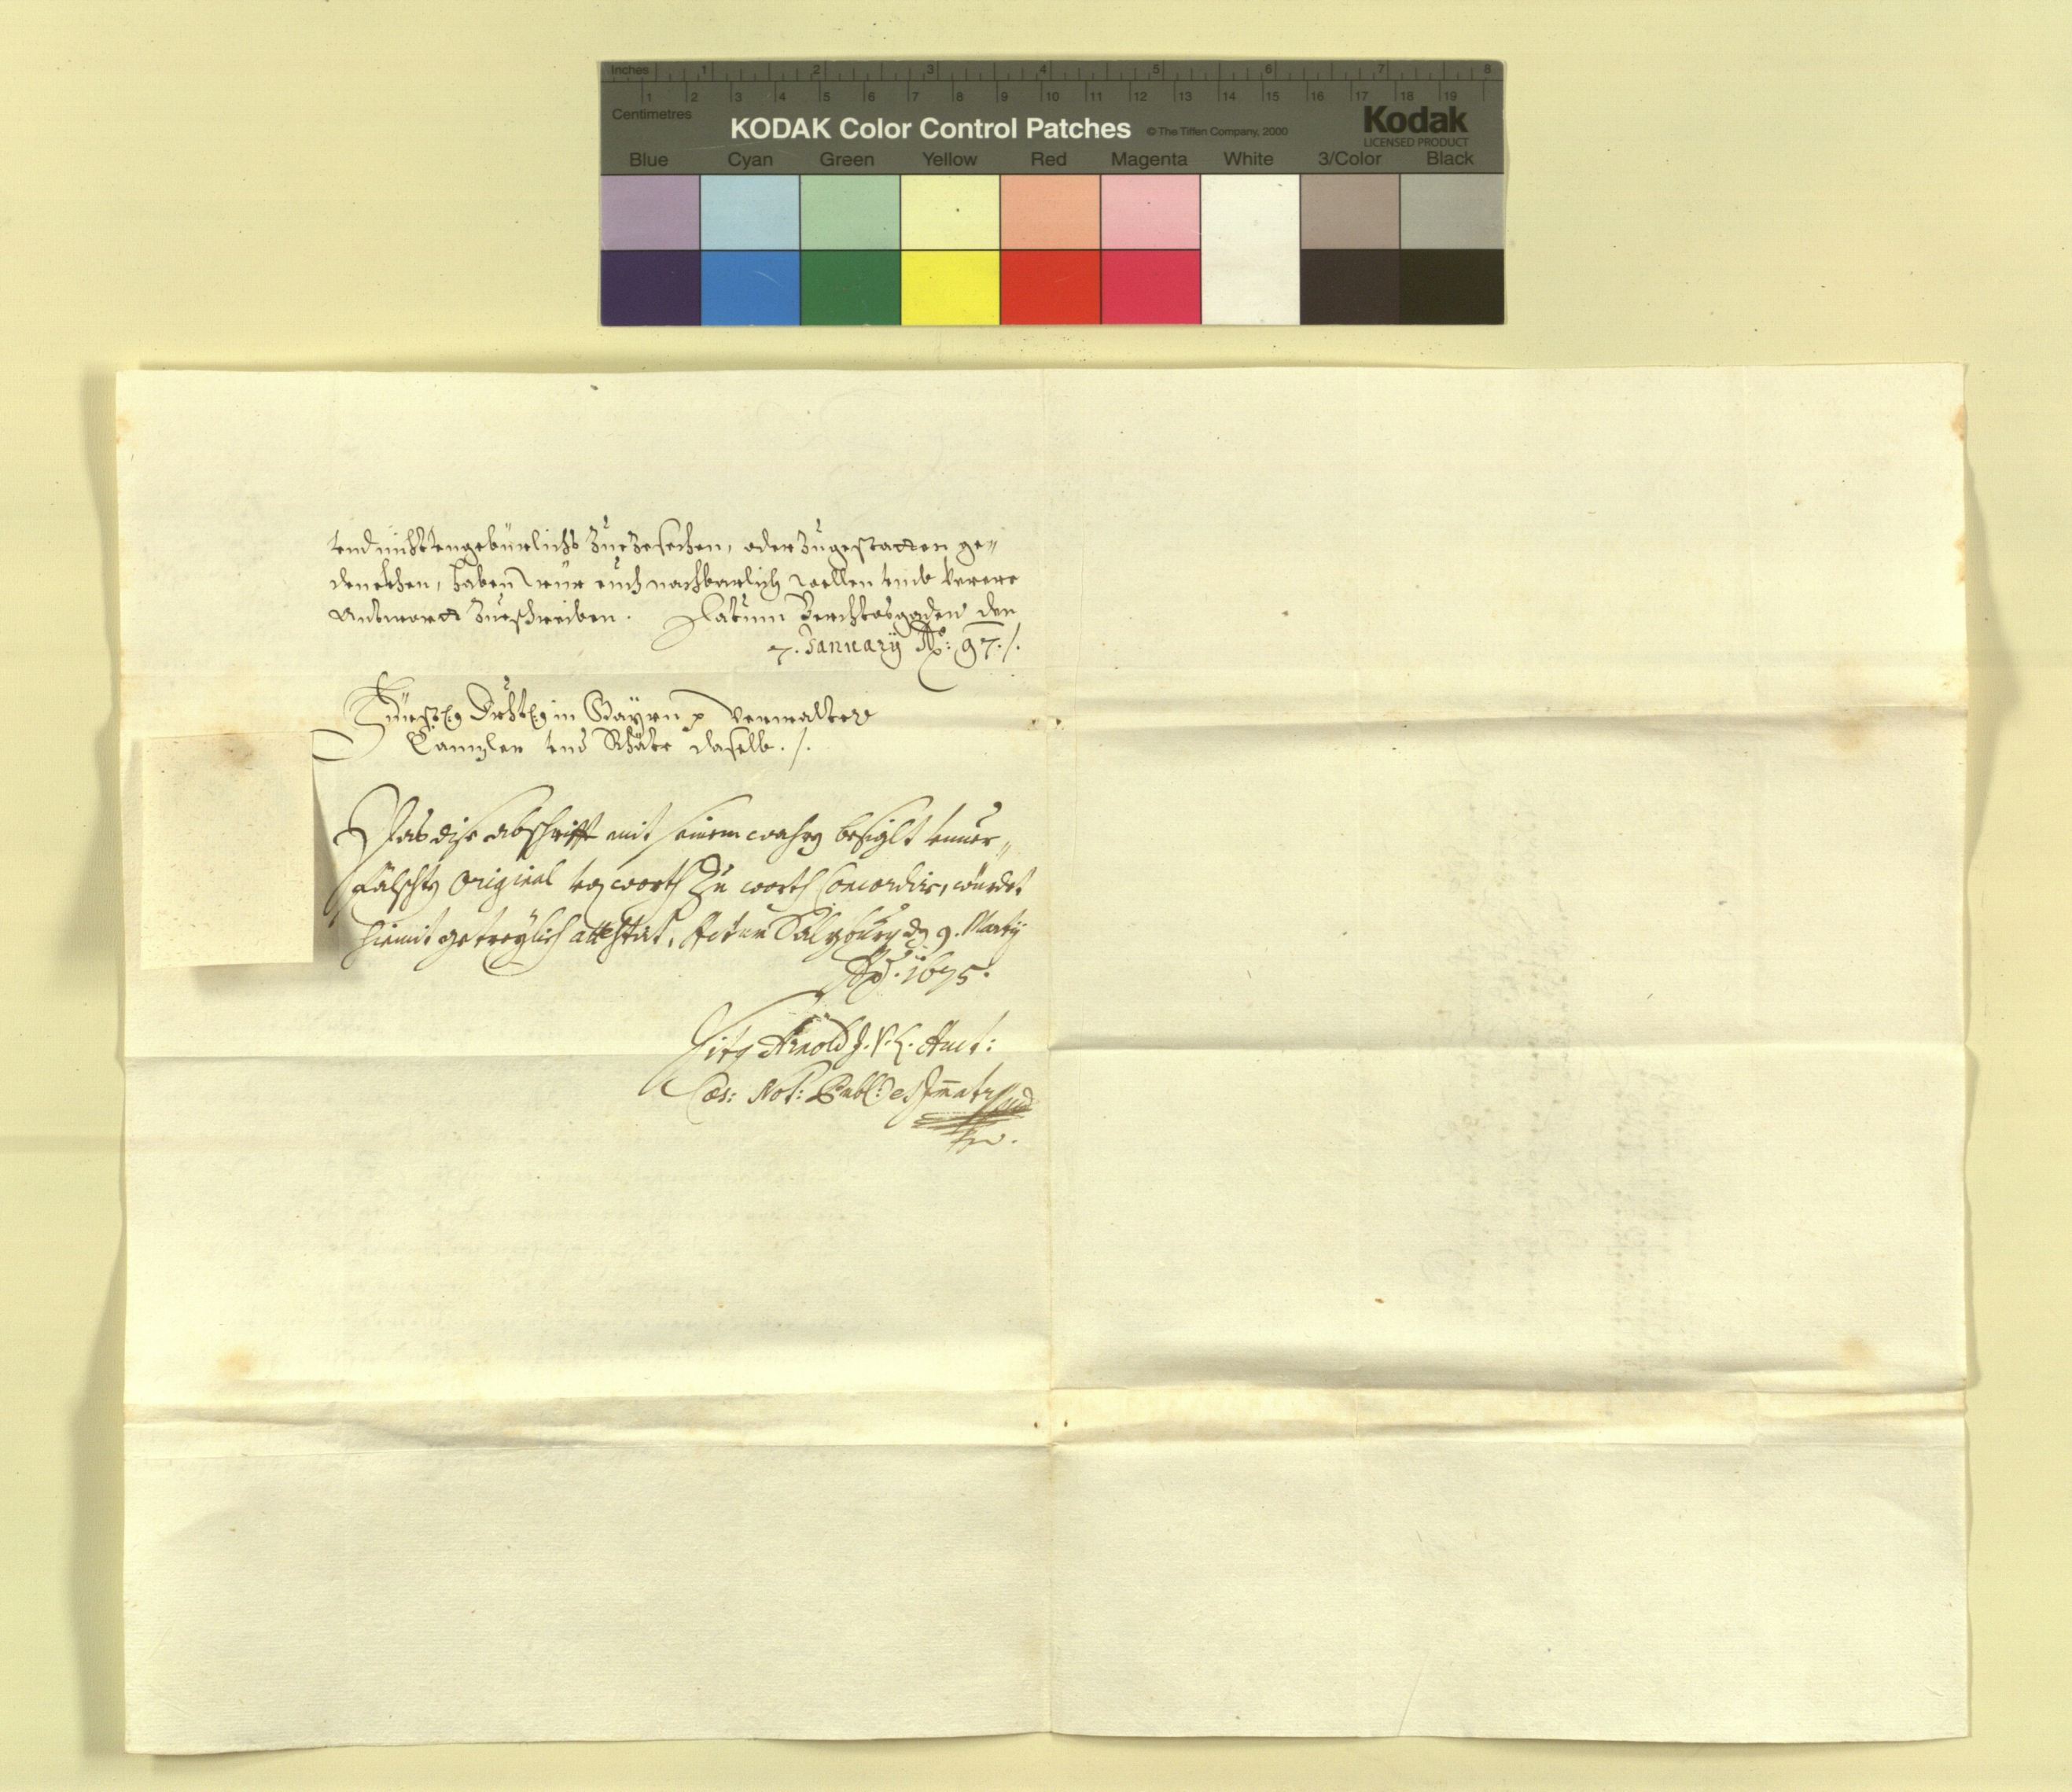 Inches 1 2 3 4 5 6 7 8
1 2 3 4 5 6 7 8 9 10 11 12 13 14 15 16 17 18 19
Centimetres
KODAK Color Control Patches © The Tiffen Company, 2000 Kodak
LICENSED PRODUCT
Blue Cyan Green Yellow Red Magenta White 3/Color Black
vnd nicht vngebürlichs zue zesechen, oder zugestatten ge„
denckhen, haben wür euch nachbarlich wellen vmb verere
Antwortt zueschreiben. Datum Berchtesgaden den
7. January Ao: 97./.
Fürstl: Drhtl: in Bayrn p verwaltere
Canzler vnd Rhäte daselb ./.
Das dise abschrifft mit seinem wahrn besiglt vnuer„
fälschtn Original von worth Zu worth Concordire, würdet
hiemit getreylich attestirt, Actum Salzburg dn 9. Martij
Ao. 1695.
Arnold J. V. L. Auct:
Caes: Not: Publ: et Immatr